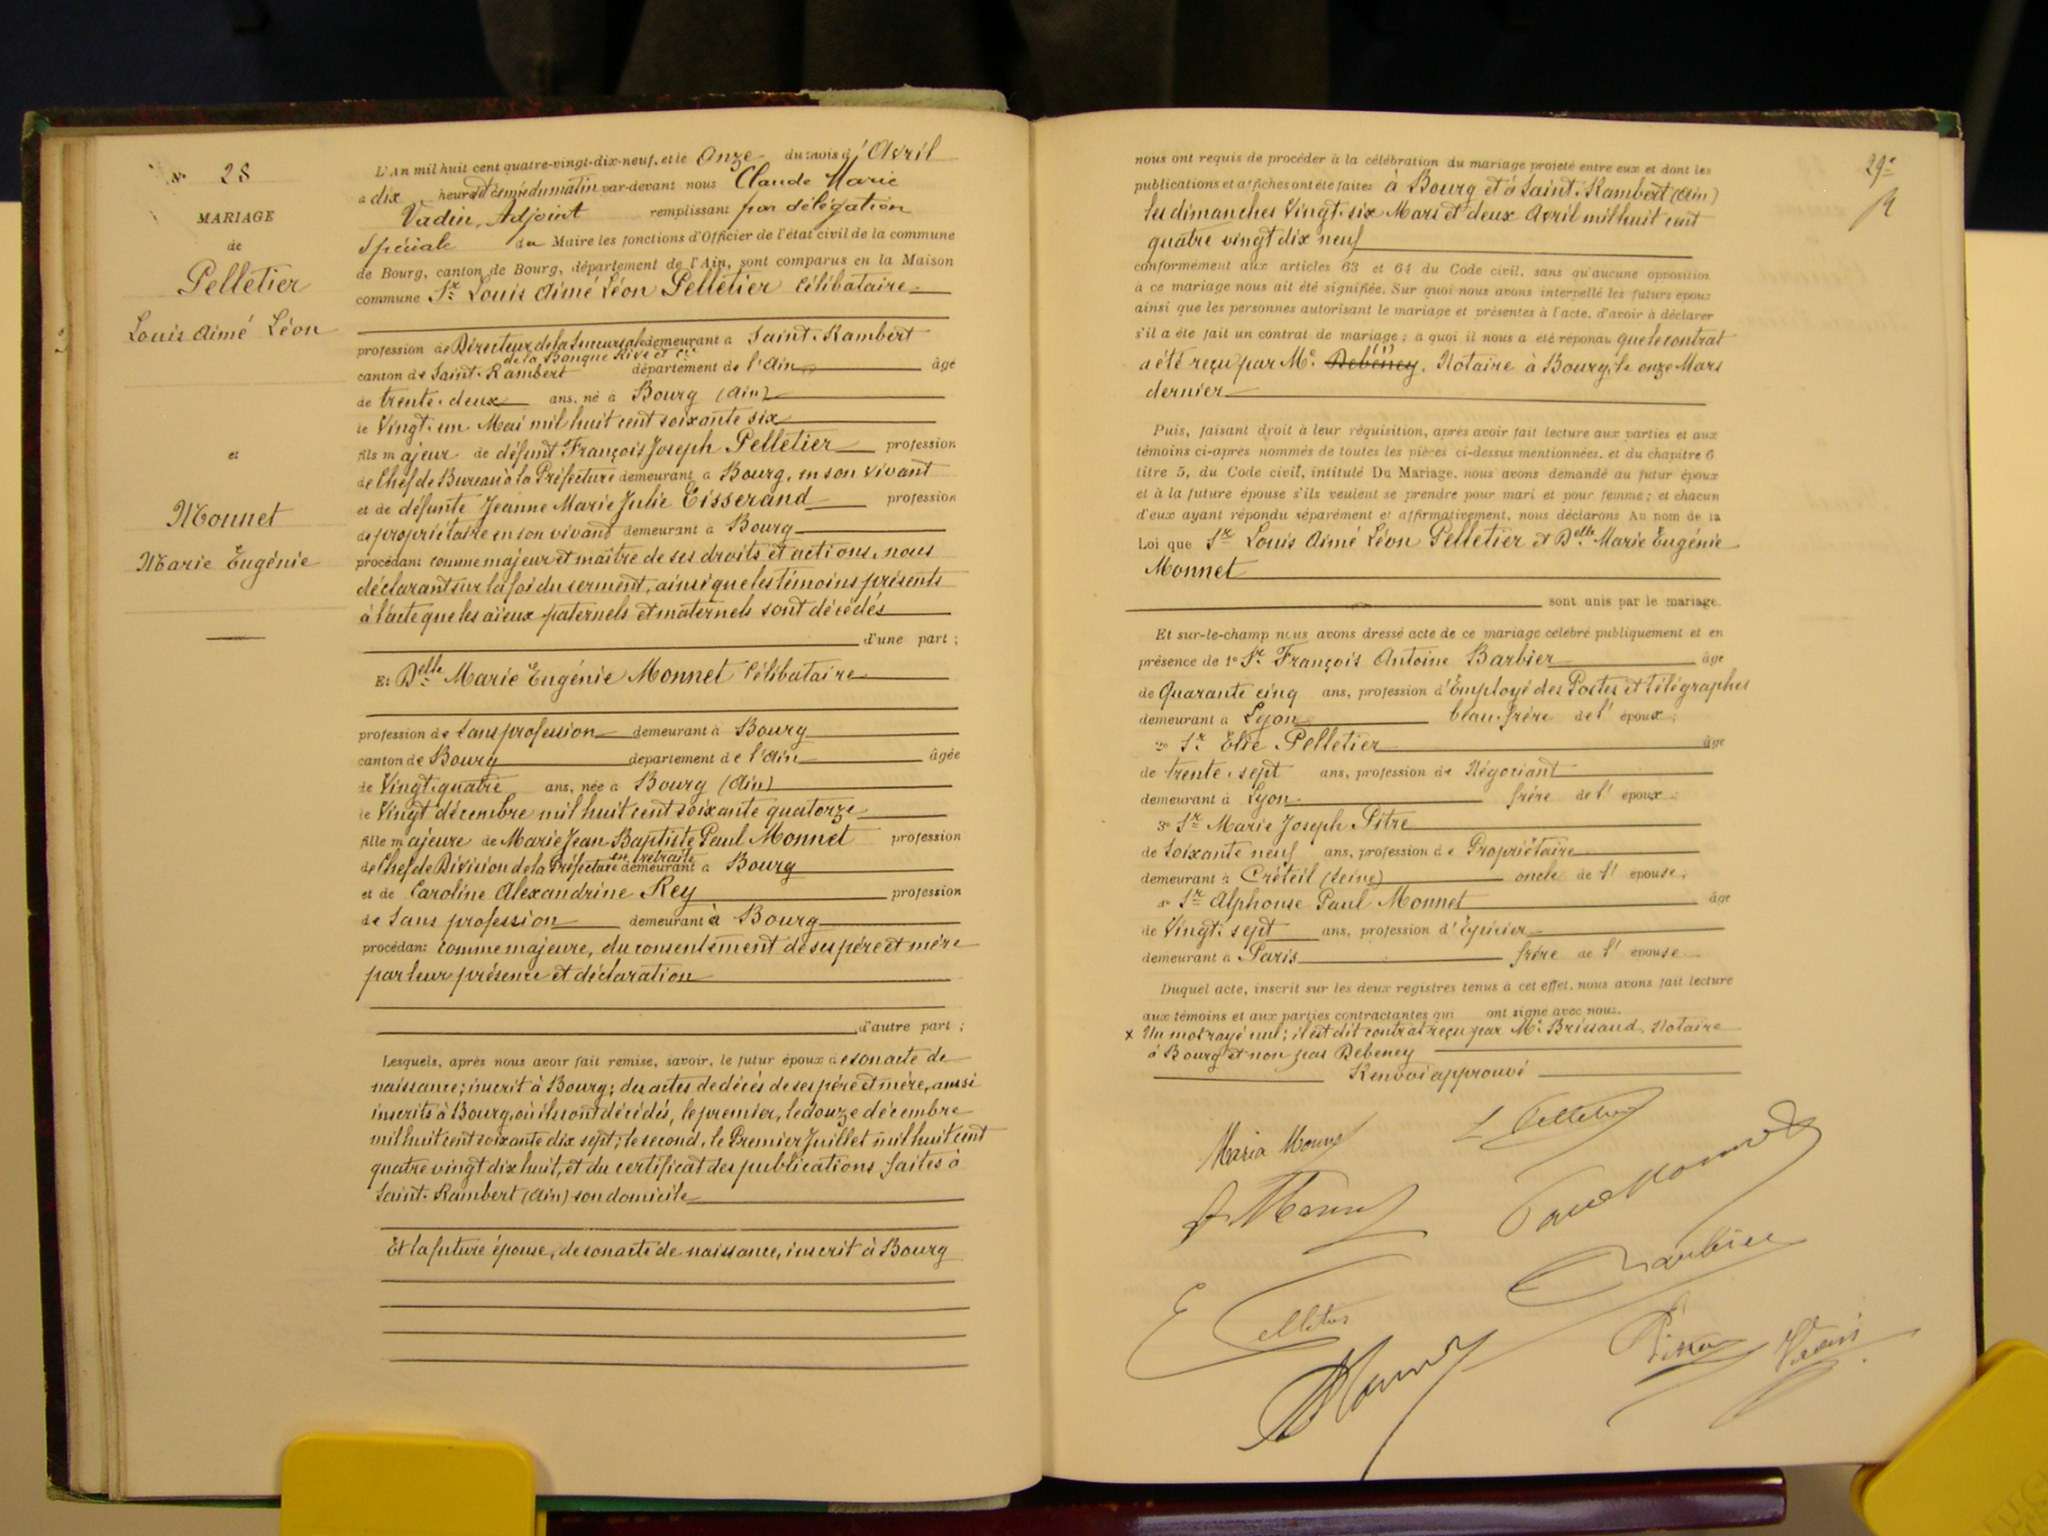 N° 28
MARIAGE
de
Pelletier
Louis Aimé Léon
et
Monnet
Marie Eugénie
L'An mil huit cent quatre-vingt-dix-neuf, et le Onze du mois d'Avril
à dix heures et demie du matin par-devant nous Claude Marie
Vadin, Adjoint remplissant par délégation
Spéciale du Maire les fonctions d'Officier de l'état civil de la commune
de Bourg, canton de Bourg, département de l'Ain, sont comparus en la Maison
commune Sr Louis Aimé Léon Pelletier Célibataire
profession de Directeur de la Succursale demeurant à Saint-Rambert
de la Banque Rive et Cie
canton de Saint-Rambert département de l'Ain âgé
de trente-deux ans, né à Bourg (Ain)
le Vingt-un Mai mil huit cent soixante six
fils majeur de défunt François Joseph Pelletier profession
de Chef de Bureau à la Préfecture demeurant à Bourg, en son vivant
et de défunte Jeanne Marie Julie Eisserand profession
de propriétaire en son vivant demeurant à Bourg
procédant comme majeur et maître de ses droits et actions, nous
déclarant sur la foi du serment, ainsi que les témoins présents
à l'acte que les aïeux paternels et maternels sont décédés
d'une part ;
Et Delle Marie Eugénie Monnet Célibataire
profession de Sans profession demeurant à Bourg
canton de Bourg département de l'Ain âgée
de Vingt-quatre ans, née à Bourg (Ain)
le Vingt décembre mil huit cent soixante quatorze
fille majeure de Marie Jean Baptiste Paul Monnet profession
en retraite
de Chef de Division de la Préfecture demeurant à Bourg
et de Caroline Alexandrine Rey profession
de Sans profession demeurant à Bourg
procédant comme majeure, du consentement de ses père et mère
par leur présence et déclaration
d'autre part ;
Lesquels, après nous avoir fait remise, savoir, le futur époux de son acte de
naissance ; inscrit à Bourg ; des actes de décès de ses père et mère, aussi
inscrits à Bourg, où ils sont décédés, le premier, le douze décembre
mil huit cent soixante dix sept ; le second, le Premier Juillet mil huit cent
quatre vingt dix huit, et du certificat des publications faites à
Saint-Rambert (Ain) son domicile
Et la future épouse, de son acte de naissance, inscrit à Bourg
29e
nous ont requis de procéder à la célébration du mariage projeté entre eux et dont les
publications et affiches ont été faites à Bourg et à Saint-Rambert (Ain)
les dimanches Vingt-six Mars et deux Avril mil huit cent
quatre vingt dix neuf
conformément aux articles 63 et 64 du Code civil, sans qu'aucune opposition
à ce mariage nous ait été signifiée. Sur quoi nous avons interpellé les futurs époux
ainsi que les personnes autorisant le mariage et présentes à l'acte, d'avoir à déclarer
s'il a été fait un contrat de mariage ; à quoi il nous a été répondu que le contrat
a été reçu par Me Debeney, Notaire à Bourg, le onze Mars
dernier
Puis, faisant droit à leur réquisition, après avoir fait lecture aux parties et aux
témoins ci-après nommés de toutes les pièces ci-dessus mentionnées, et du chapitre 6
titre 5, du Code civil, intitulé Du Mariage, nous avons demandé au futur époux
et à la future épouse s'ils veulent se prendre pour mari et pour femme ; et chacun
d'eux ayant répondu séparément et affirmativement, nous déclarons Au nom de la
Loi que Sr Louis Aimé Léon Pelletier et Delle Marie Eugénie
Monnet
sont unis par le mariage.
Et sur-le-champ nous avons dressé acte de ce mariage célébré publiquement et en
présence de 1° Sr François Antoine Barbier âgé
de Quarante cinq ans, profession d'Employé des Postes et télégraphes
demeurant à Lyon beau-frère de l'époux ;
2° Sr Elie Pelletier âgé
de trente-sept ans, profession de Négociant
demeurant à Lyon frère de l'époux ;
3° Sr Marie Joseph Pitre
de Soixante neuf ans, profession de Propriétaire
demeurant à Créteil (Seine) oncle de l'épouse,
4° Sr Alphonse Paul Monnet âgé
de Vingt-sept ans, profession d'Epicier
demeurant à Paris frère de l'épouse
Duquel acte, inscrit sur les deux registres tenus à cet effet, nous avons fait lecture
aux témoins et aux parties contractantes qui ont signé avec nous.
x Un mot rayé nul ; il est dit contrat reçu par Me Brissaud, Notaire
à Bourg et non pas Debeney
Renvoi approuvé
Maria Monnet L Pelletier
A. Monnet Paul Monnet
E Pelletier Barbier
Monnet Pitre Vadin